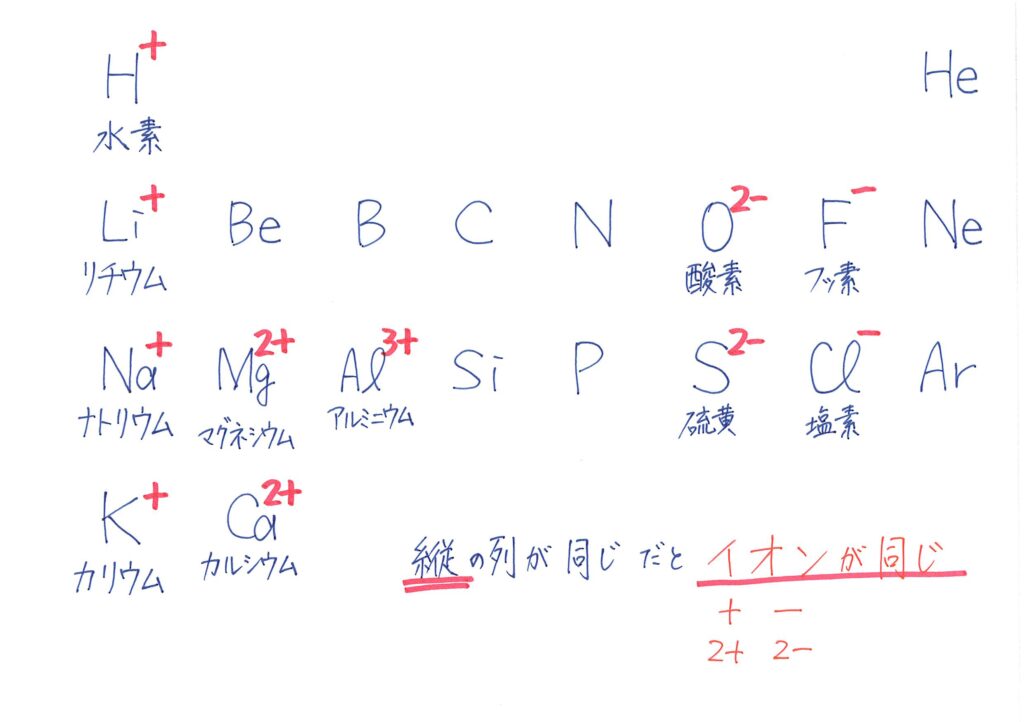 H+ He
水素
Li+ Be B C N O2- F- Ne
リチウム 酸素 フッ素
Na+ Mg2+ Al3+ Si P S2- Cl- Ar
ナトリウム マグネシウム アルミニウム 硫黄 塩素
K+ Ca2+
カリウム カルシウム
縦の列が同じだと イオンが同じ
+ -
2+ 2-